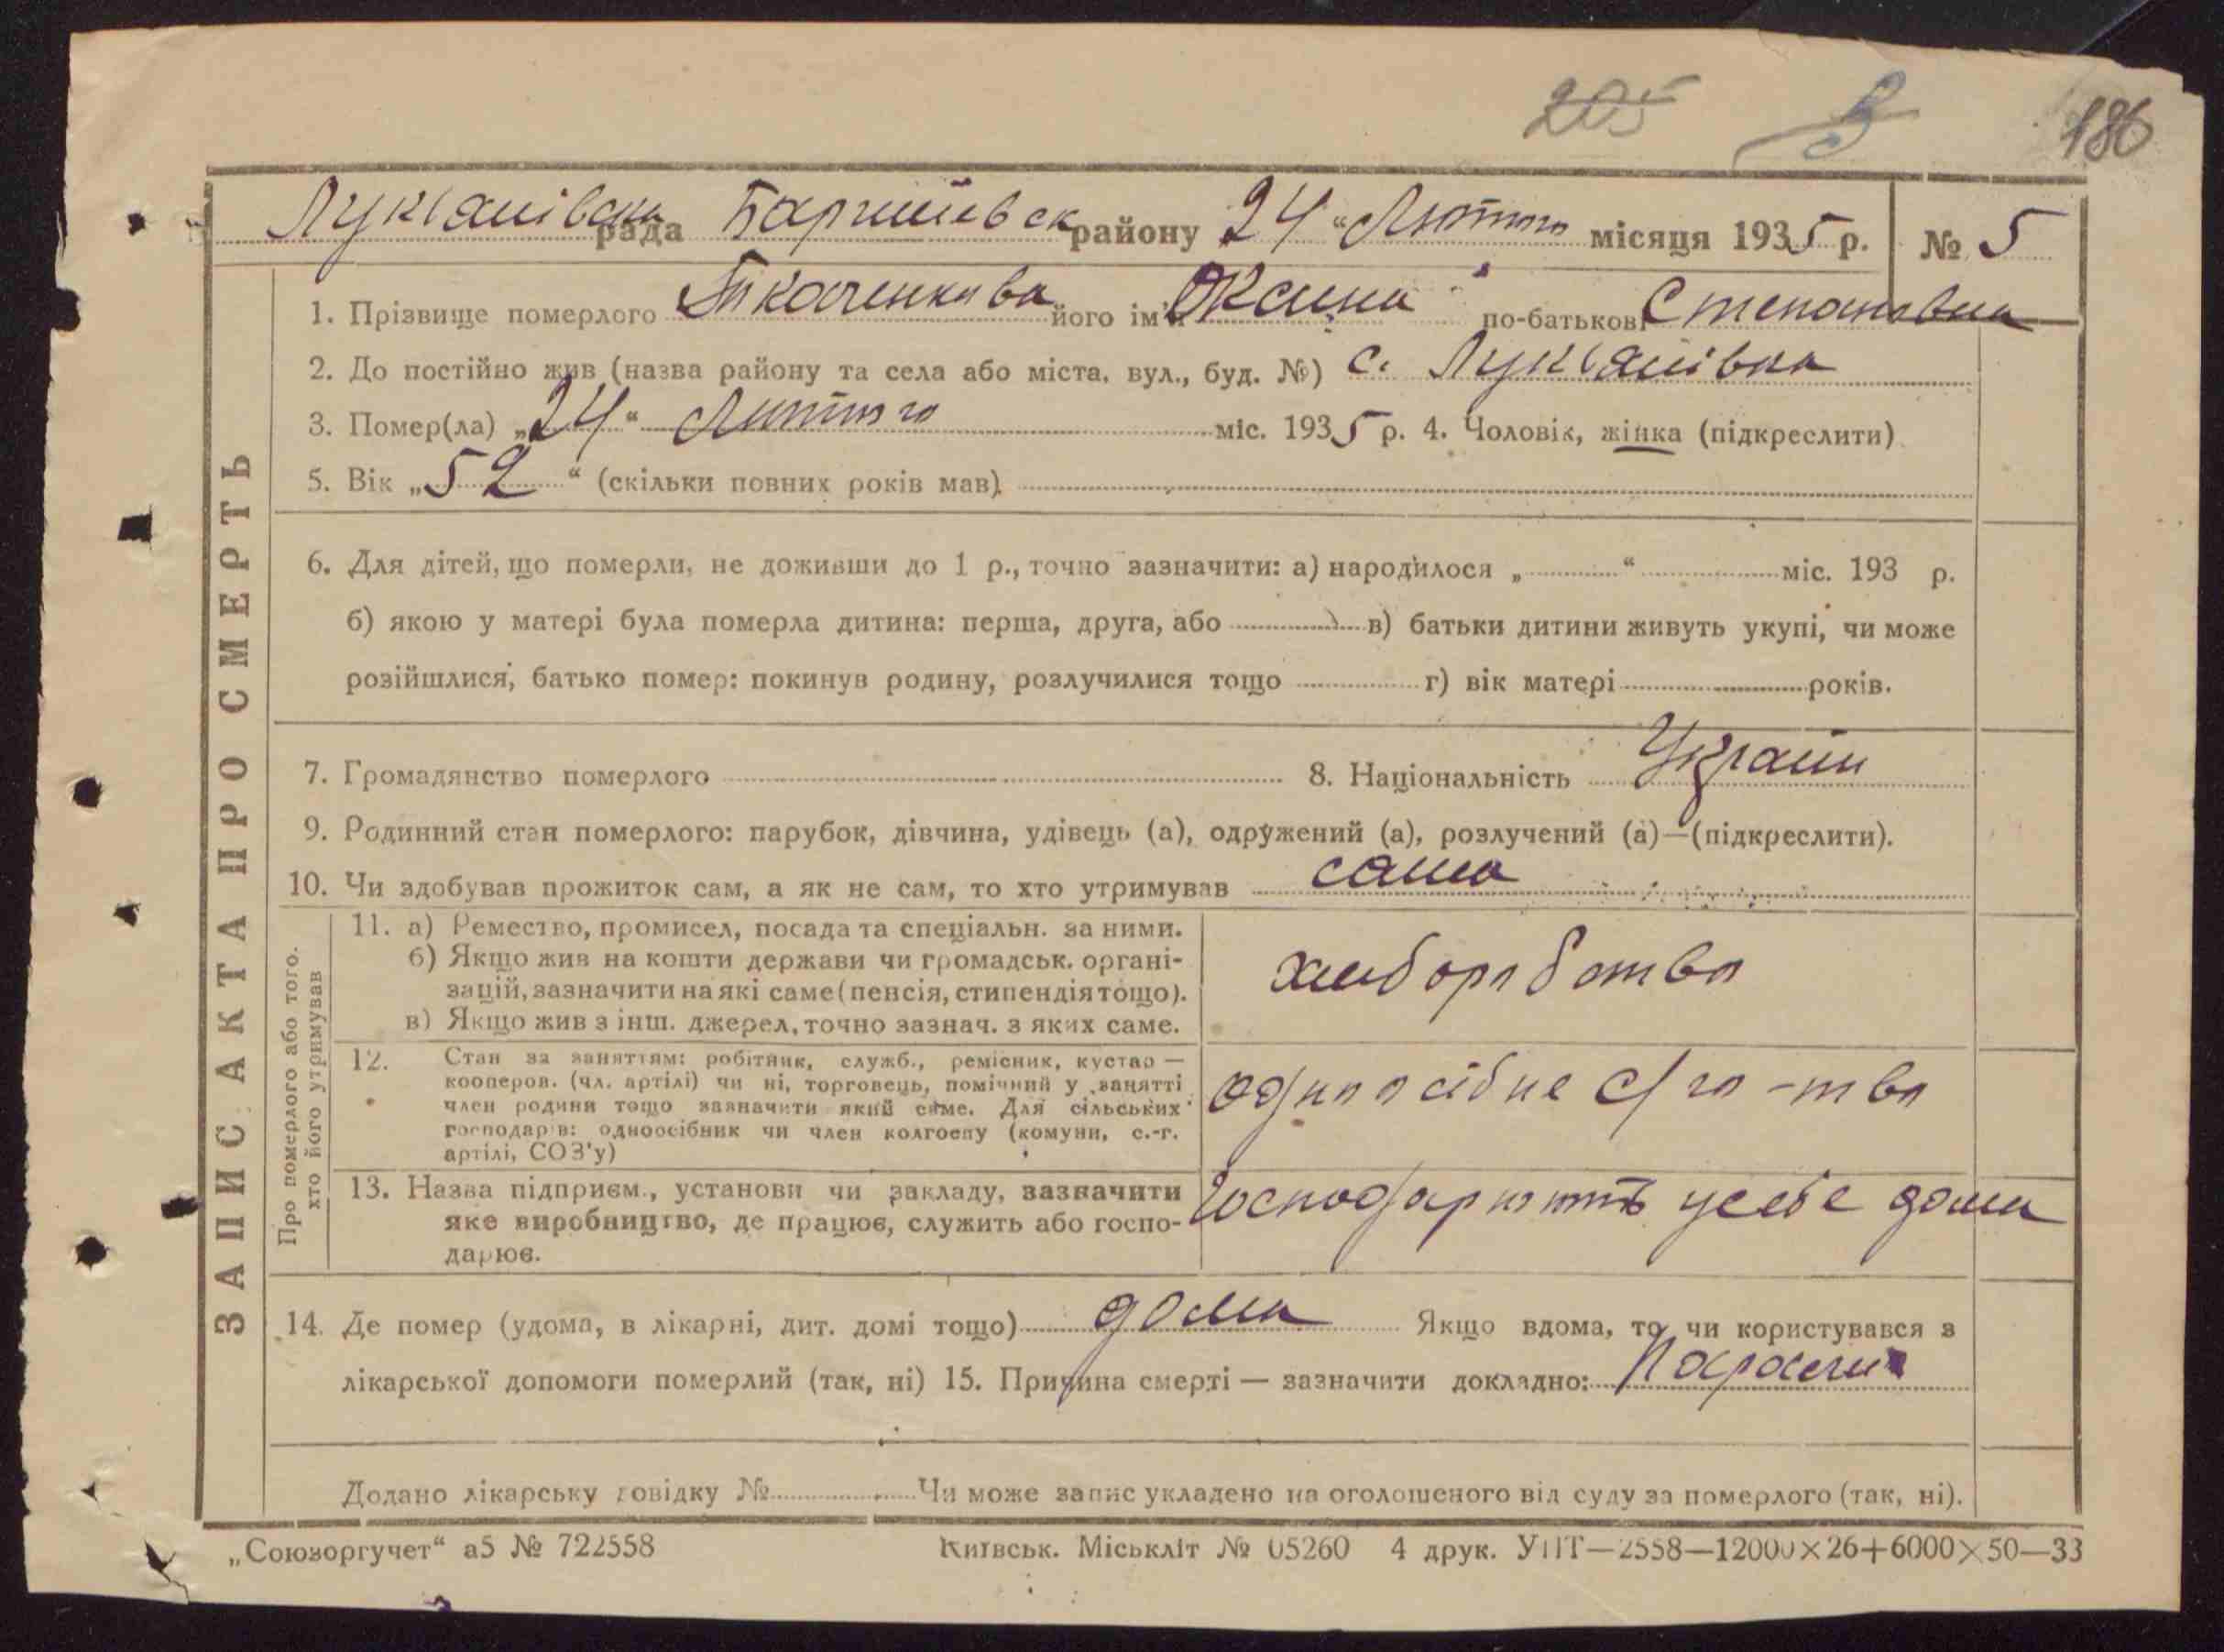 205 3 186
Лукіанівська рада Баришівськ району 24 "Лютого місяця 1935 р. № 5
1. Прізвище померлого Ткаченкова його ім'я Оксана по-батькові Степановна
2. До постійно жив (назва району та села або міста, вул., буд. №) с. Лукіанівка
3. Помер(ла) „24" Лютого міс. 1935 р. 4. Чоловік, жінка (підкреслити)
5. Вік „52" (скільки повних років мав)
6. Для дітей, що померли, не доживши до 1 р., точно зазначити: а) народилося „ " міс. 193 р.
б) якою у матері була померла дитина: перша, друга, або в) батьки дитини живуть укупі, чи може
розійшлися, батько помер: покинув родину, розлучилися тощо г) вік матері років.
7. Громадянство померлого 8. Національність Україн
9. Родинний стан померлого: парубок, дівчина, удівець (а), одружений (а), розлучений (а)—(підкреслити).
10. Чи здобував прожиток сам, а як не сам, то хто утримував сама
ЗАПИС АКТА ПРО СМЕРТЬ
Про померлого або того.
хто його утримував
11. а) Ремество, промисел, посада та спеціальн. за ними.
б) Якщо жив на кошти держави чи громадськ. органі-
зацій, зазначити на які саме (пенсія, стипендія тощо).
в) Якщо жив з інш. джерел, точно зазнач. з яких саме.
хліборобство
12. Стан за заняттям: робітник, служб., ремісник, кустар —
кооперов. (чл. артілі) чи ні, торговець, помічний у занятті
член родини тощо зазначити який саме. Для сільських
господарів: одноосібник чи член колгоспу (комуни, с.-г.
артілі, СОЗ'у)
одноосібне с/го-тво
13. Назва підприєм., установи чи закладу, зазначити
яке виробництво, де працює, служить або госпо-
дарює.
господарють усебе дома
14. Де помер (удома, в лікарні, дит. домі тощо) дома Якщо вдома, то чи користувався з
лікарської допомоги померлий (так, ні) 15. Причина смерті — зазначити докладно:
Додано лікарську довідку № Чи може запис укладено на оголошеного від суду за померлого (так, ні).
„Союзоргучет" а5 № 722558 Київськ. Міськліт № 05260 4 друк. УПТ—2558—12000×26+6000×50—33